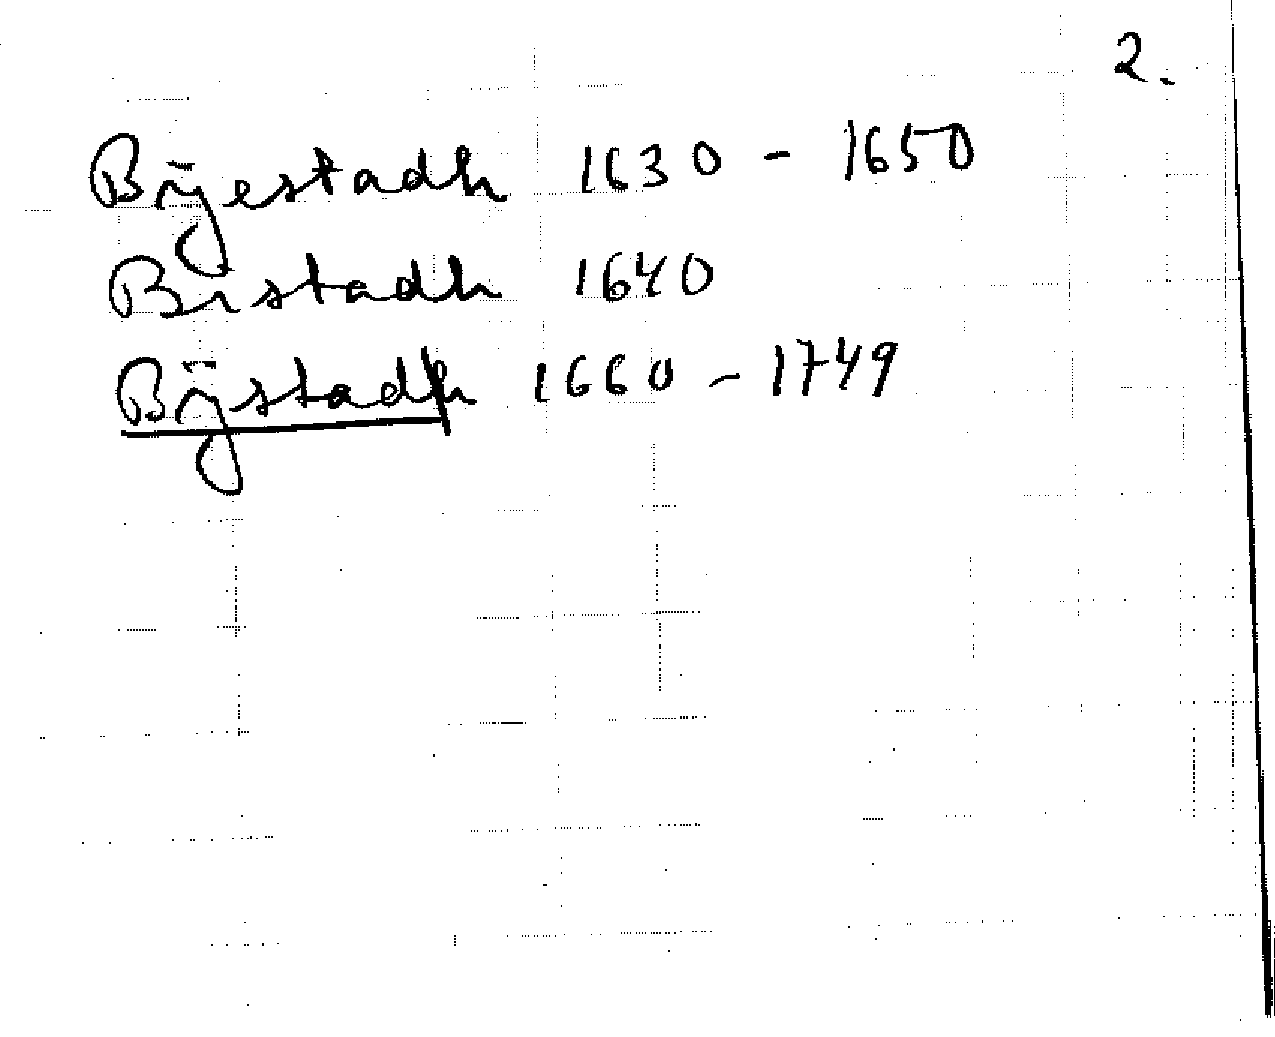 2.
Bijestadh 1630 - 1650
Bistadh 1640
Bijstadh 1660 - 1749